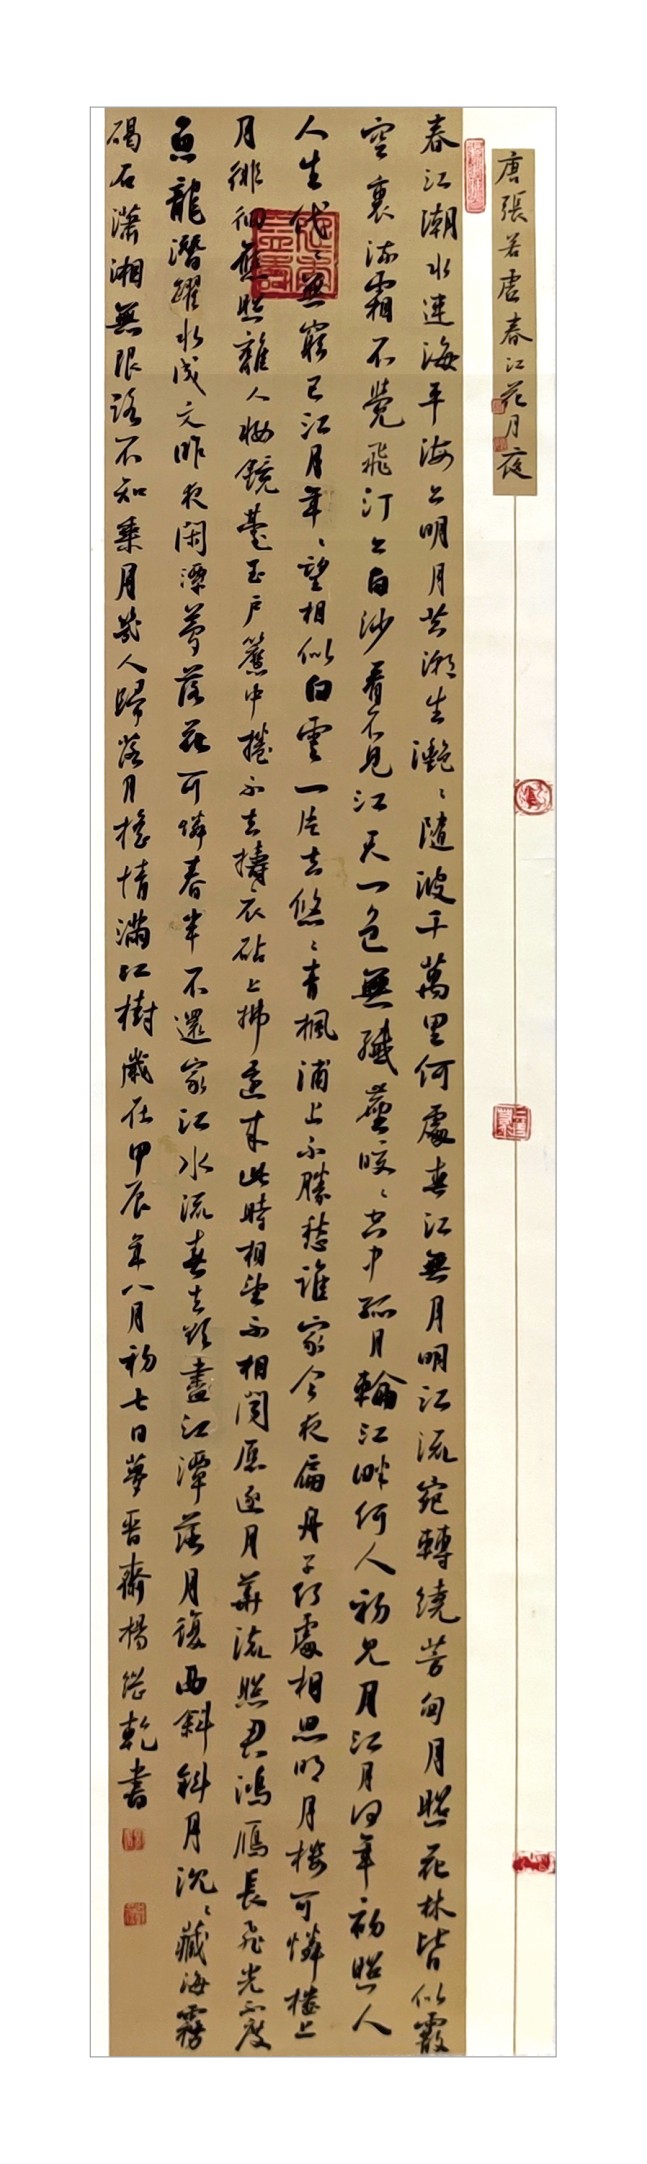 唐張若虛春江花月夜
春江潮水連海平海上明月共潮生灧〻隨波千萬里何處春江無月明江流宛轉繞芳甸月照花林皆似霰
空裏流霜不覺飛汀上白沙看不見江天一色無纖塵皎〻空中孤月輪江畔何人初見月江月何年初照人
人生代〻無窮已江月年〻望相似白雲一片去悠〻青楓浦上不勝愁誰家今夜扁舟子何處相思明月樓可憐樓上
月徘徊應照離人妝鏡臺玉戶簾中捲不去擣衣砧上拂還來此時相望不相聞願逐月華流照君鴻雁長飛光不度
魚龍潛躍水成文昨夜閑潭夢落花可憐春半不還家江水流春去欲盡江潭落月復西斜斜月沉〻藏海霧
碣石瀟湘無限路不知乘月幾人歸落月搖情滿江樹歲在甲辰年八月初七日夢晉齋楊從乾書